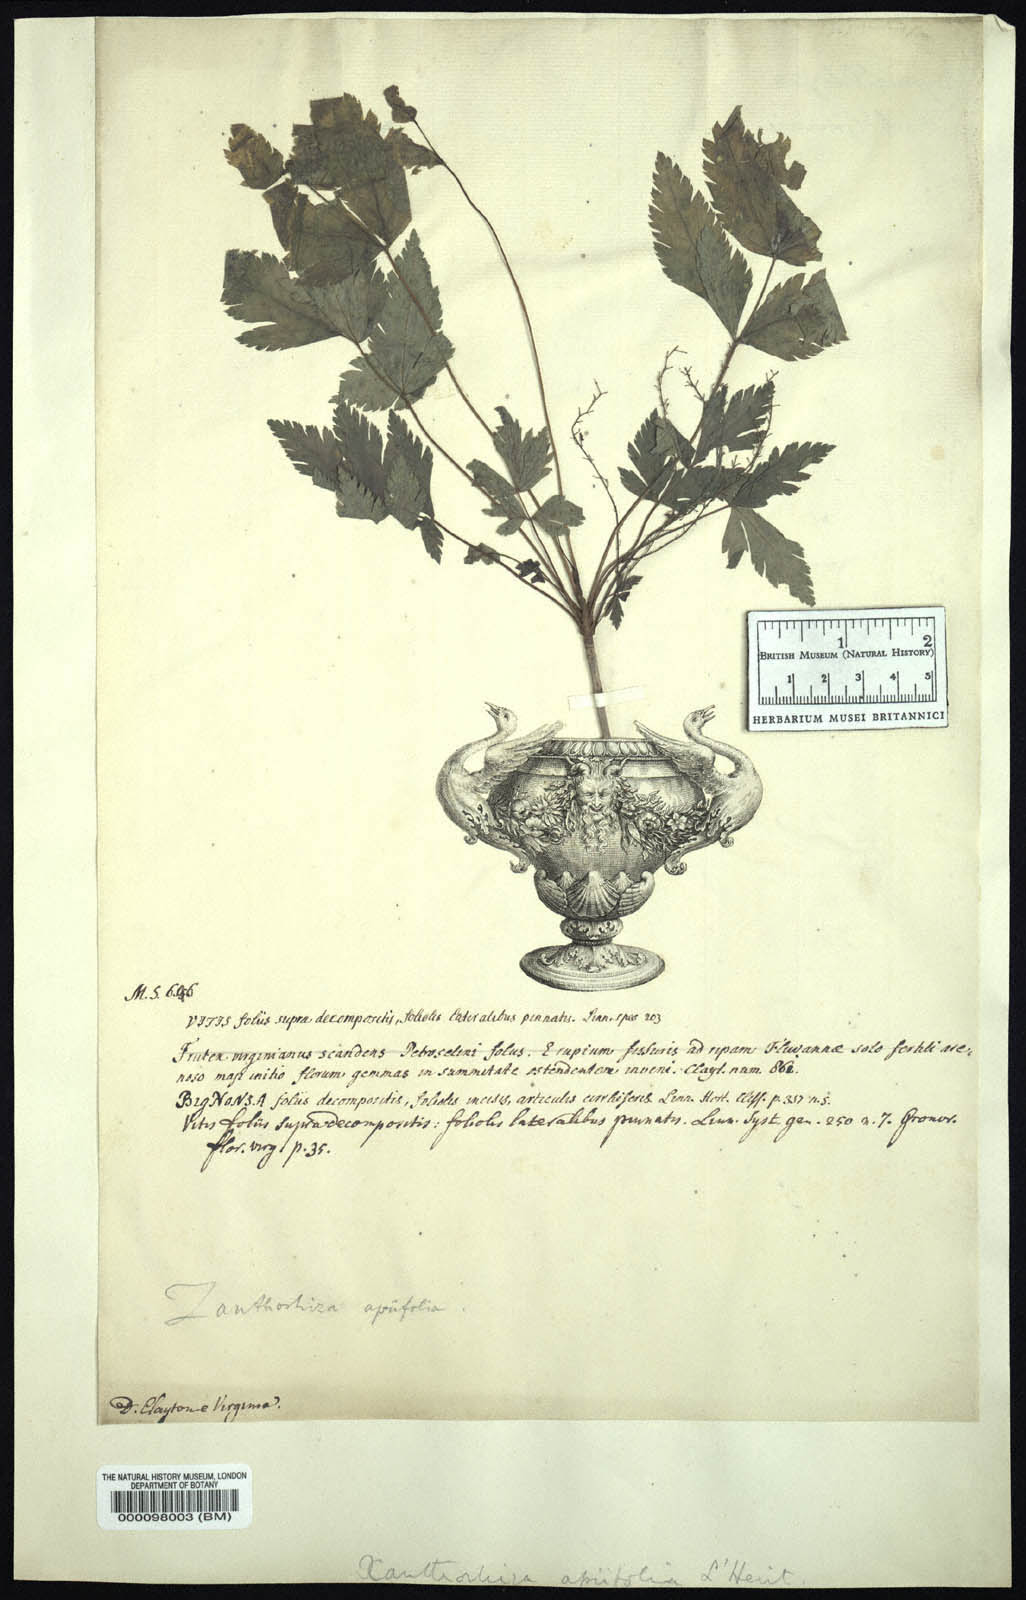 1 2
BRITISH MUSEUM (NATURAL HISTORY)
1 2 3 4 5
HERBARIUM MUSEI BRITANNICI
M. S. 696
VITIS foliis supra decompositis, foliolis lateralibus pinnatis. Linn. spec 203
Frutex virginianus scandens Petroselini foliis. E rupium fissuris ad ripam Fluvannæ solo fertili are,
noso maji initio florum gemmas in summitate ostendentem inveni. Clayt. num. 861.
BIGNONIA foliis decompositis, foliolis incisis, articulis cirrhiferis Linn. Hort. Cliff. p. 317 n. 5.
Vitis foliis supradecompositis: foliolis lateralibus pinnatis. Linn. Syst. gen. 250 n. 7. Gronov.
flor. virg. p. 35.
Zanthorhiza apiifolia.
D. Clayton e Virginia.
THE NATURAL HISTORY MUSEUM, LONDON
DEPARTMENT OF BOTANY
000098003 (BM)
Xanthorhiza apiifolia L'Herit.